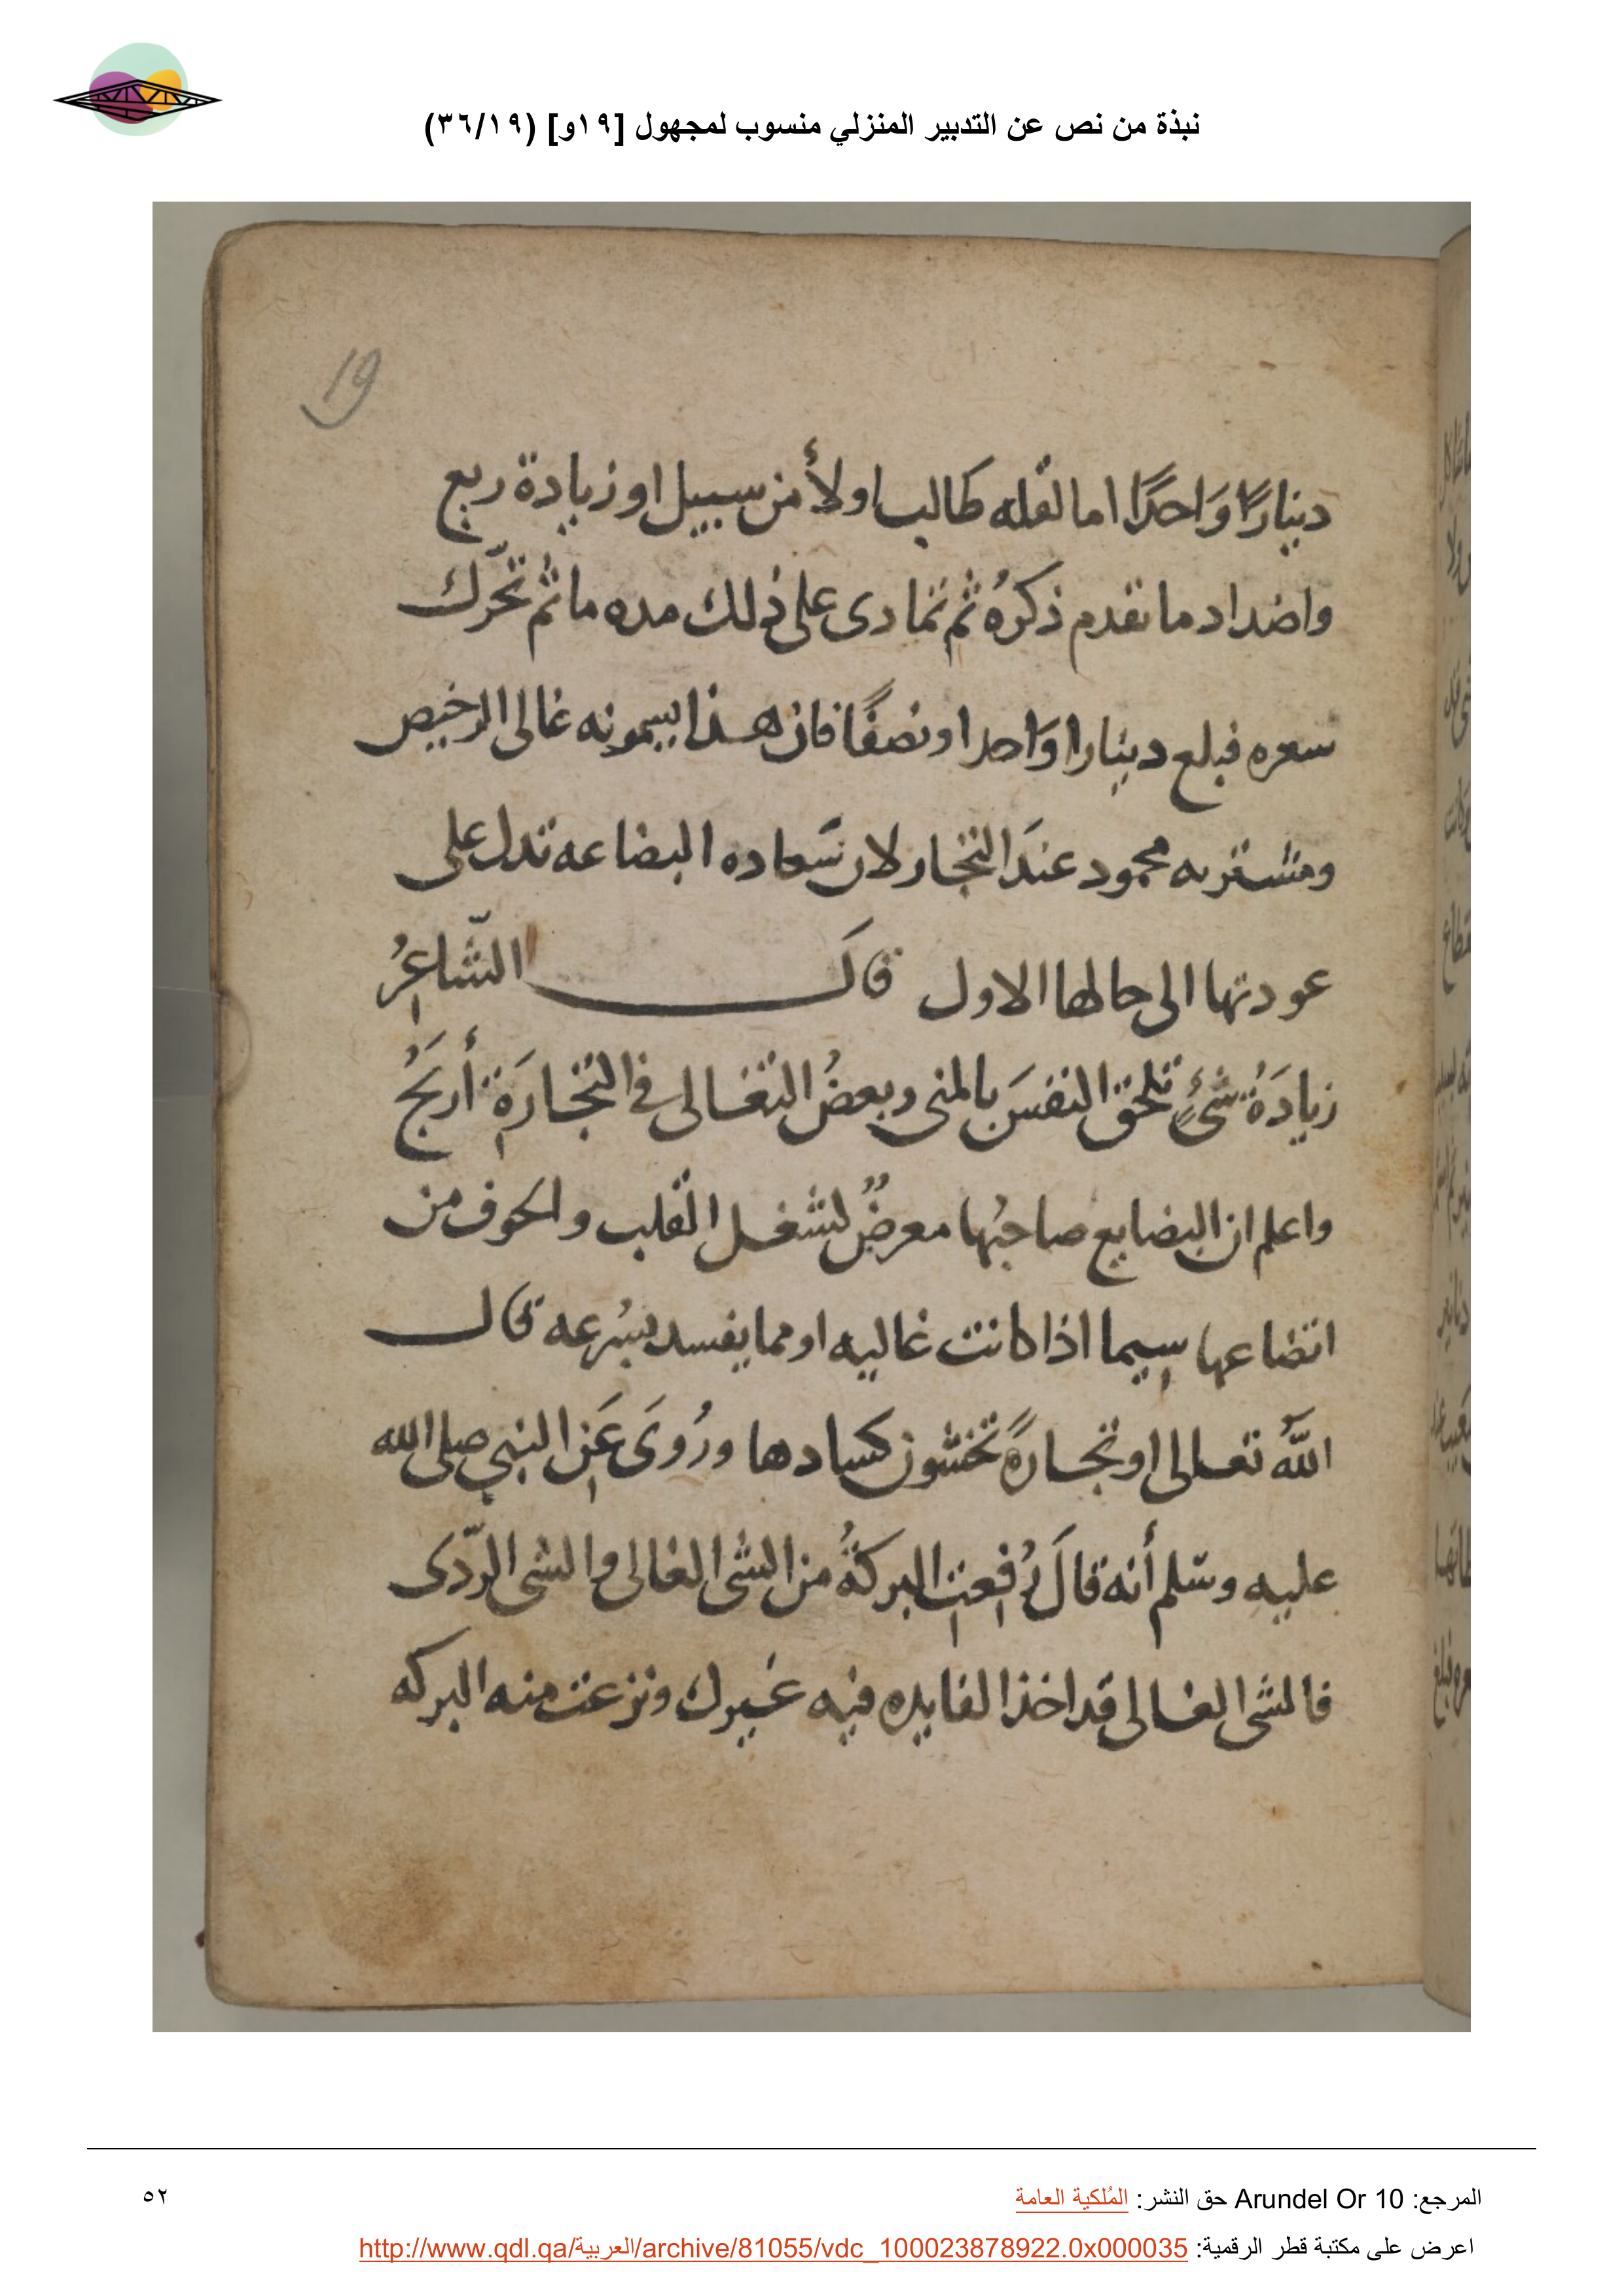 نبذة من نص عن التدبير المنزلي منسوب لمجهول [١٩و] (٣٦/١٩)
19
دينارًا وَاحدًا اما لقله طالب اولأ من سبيل او زيادة ربع
واضداد ما تقدم ذكرهُ ثم تمادى على ذلك مده ما ثم تحّرك
سعره فبلع دينارا وَاحدا ونصفًا فان هذا يسمونه غالى الرخيص
ومشتريه محمود عندَ التجار لان سَعاده البضاعه تدل على
عودتها الى حالها الاول قالَ الشّاعِرُ
زيادَةُ شىءٍ تلحق النفسَ بالمنى وبعضُ التغالى فى التجارَةِ أربَحُ
واعلم ان البضايع صاحبُها معرضٌ لشغل القلب والخوف من
اتضاعها سيما اذا كانت غاليه او مما يفسد بسُرعه قال
اللهُ تعالى او تجارةً تخشون كسادها ورُوىَ عَنِ النبي صلى الله
عليه وسّلم أنه قالَ رُفِعتِ البركةُ من الشى الغالى والشى الرّدى
فالشى الغالى قد اخذ الفايده فيه غيرك ونزعت منه البركه
المرجع: Arundel Or 10 حق النشر: المُلكية العامة
٥٢
اعرض على مكتبة قطر الرقمية: http://www.qdl.qa/العربية/archive/81055/vdc_100023878922.0x000035